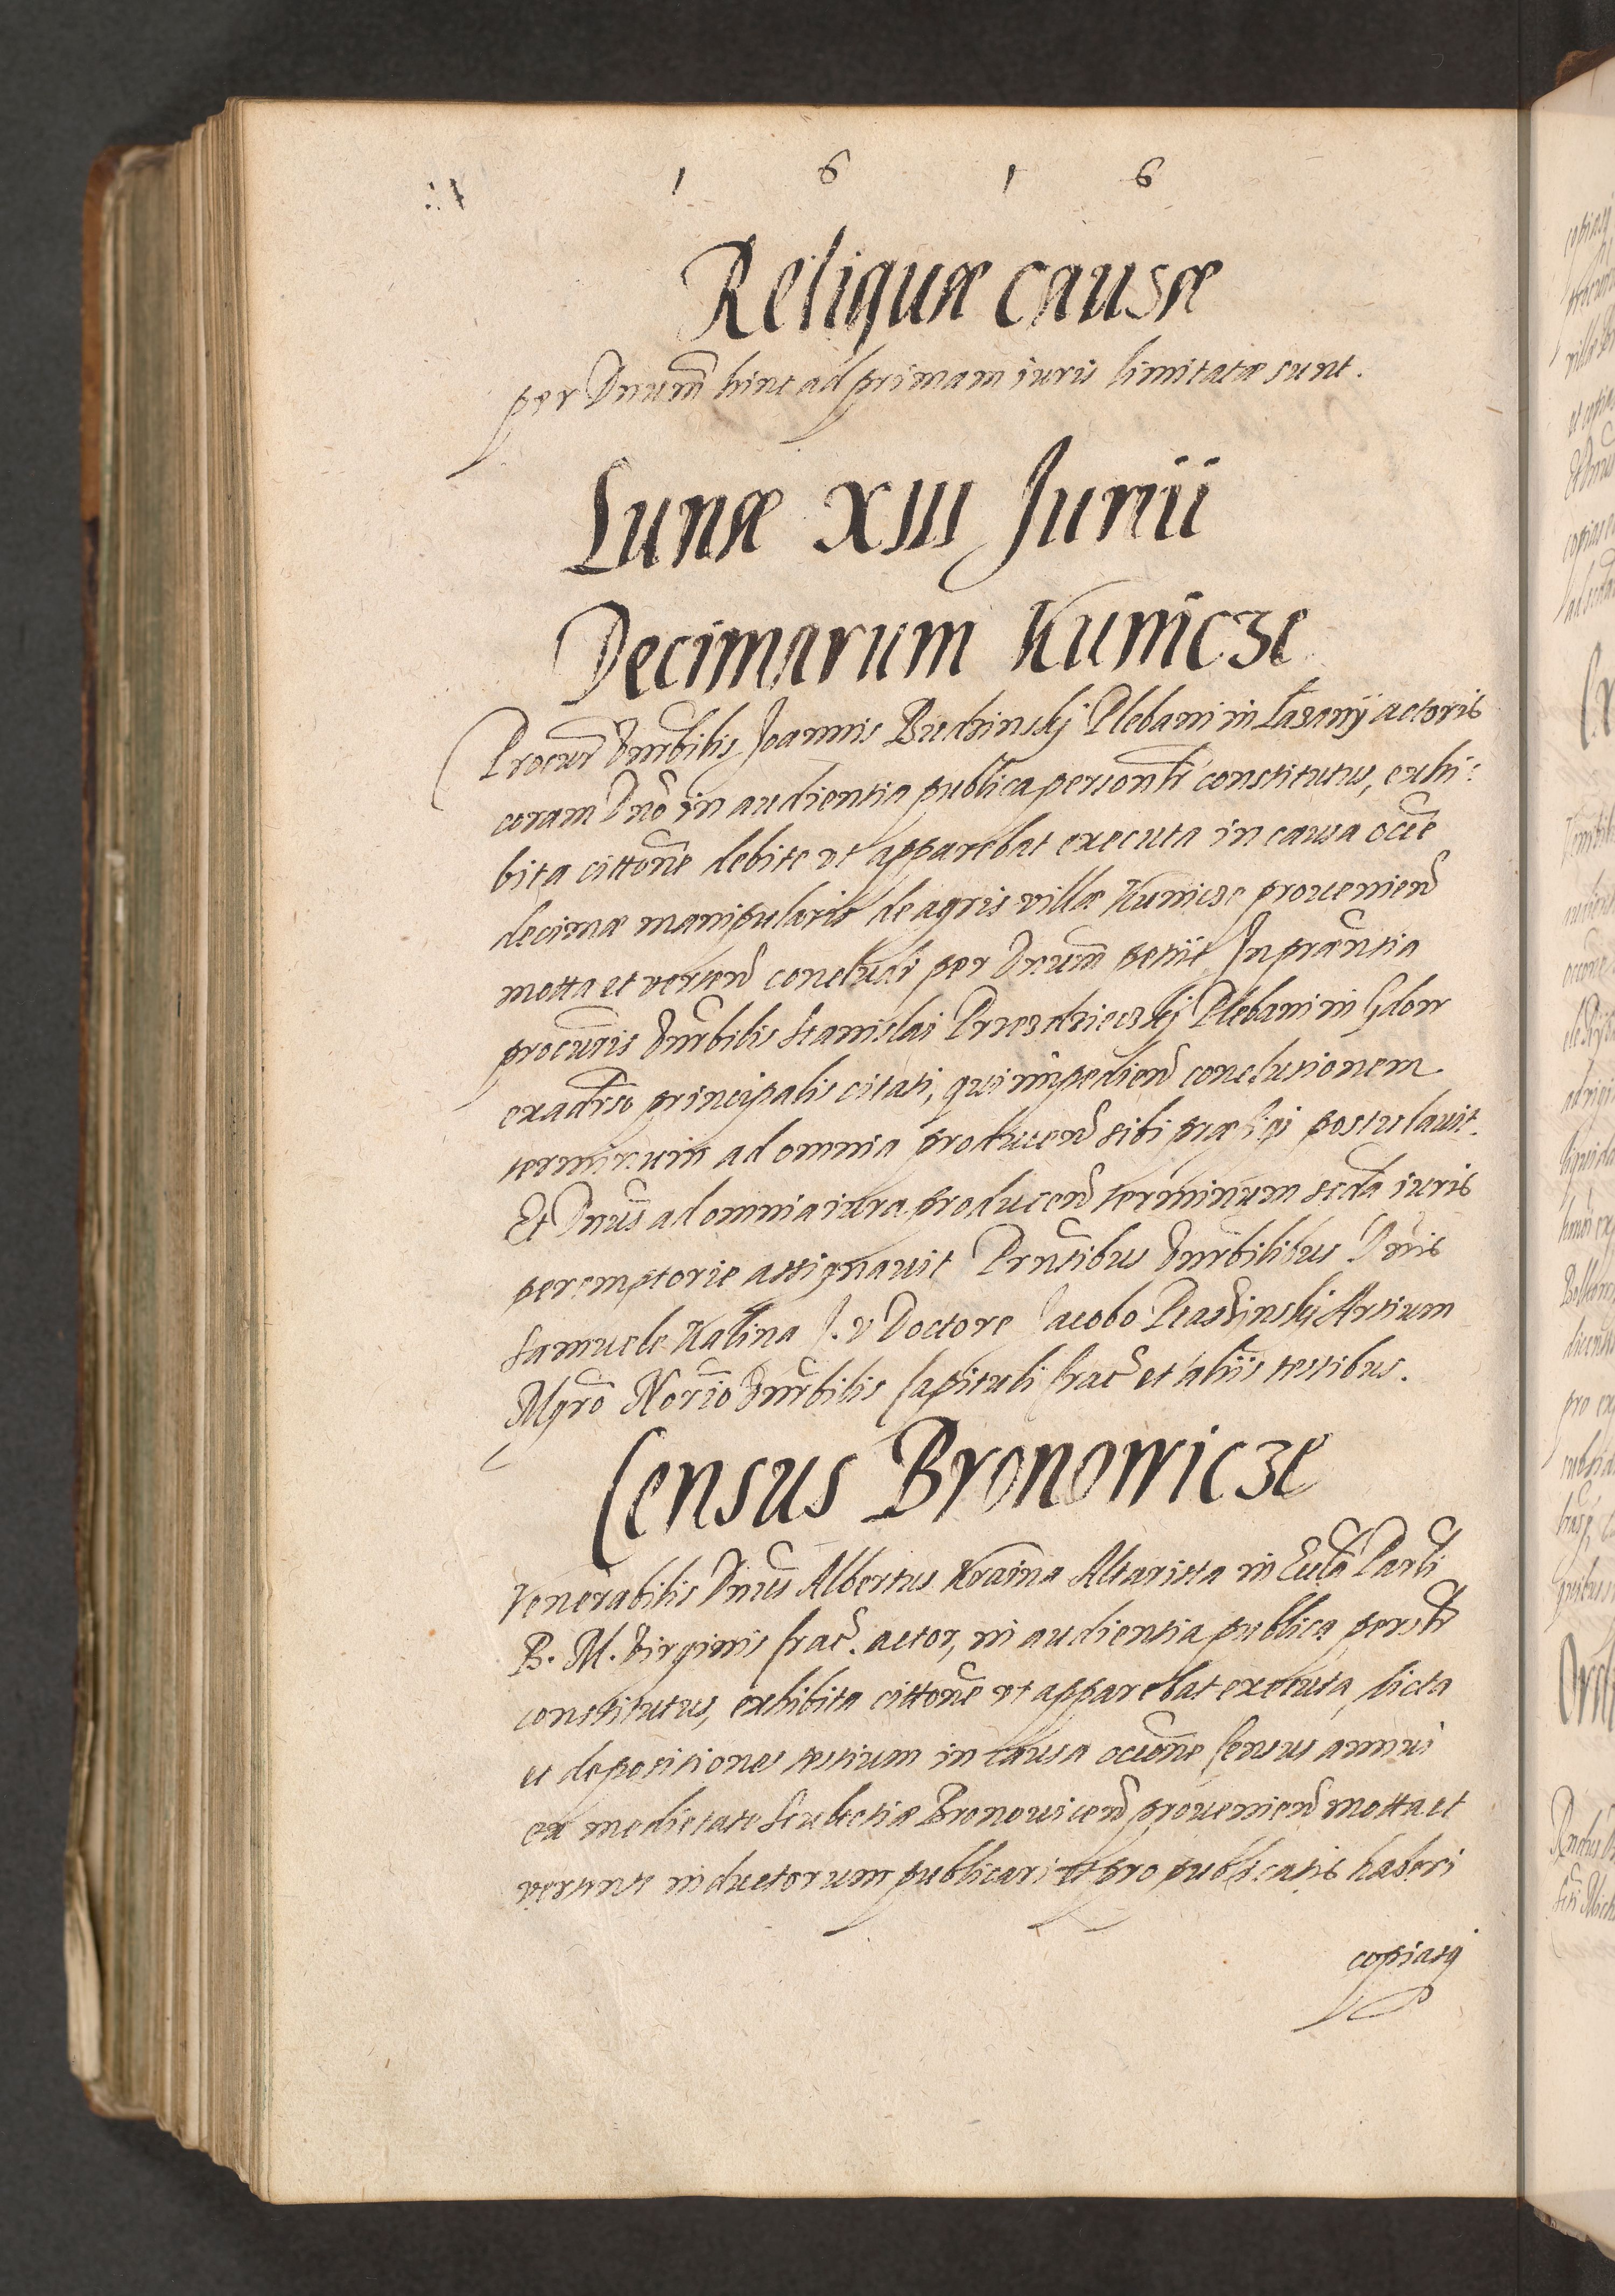 1 6 1 6
Reliquæ causæ
per Dnum̃ hinc ad primam iuris limitatæ sunt.
Lunæ XIII Junii
Decimarum Kunicze
Procur̃ Vnrbilis Joannis Biedzinskj Plebani in Lazany actoris
coram Dno in audientia publica personlr constitutus, exhi:
bita cittone debite vt apparebat executa in causa occne
decimæ manipularis de agris villæ Kunicze proueniend
motta et vertend concludi per Dnum petiit, In præntia
procuris Vnrbilis Stanislai Przezdzieczkj Plebani in Gdow
exadrso principalis citati, qui impediend conclusionem
terminum ad omnia producend sibi præfigi postulauit.
Et Dnus ad omnia iura producend terminum scda iuris
peremptorie assignauit Prntibus Vnrbilibus Dnis
Samuele Kalina J. V Doctore Jacobo Piaszinskj Artium
Mgro Norio Vnrbilis Capituli Crac et aliis testibus.
Census Bronowicze
Venerabilis Dnus Albertus Kraina Altarista in Eccla Parli
B. M. Virginis Crac. actor, in audientia publica persolr
constitutus, exhibita cittone vt apparebat executa, dicta
et depositiones testium in causa occone Census annui
ex medietate Scultetiæ Bronouicend proueniend motta et
vertente inductorum publicari et pro publicatis haberi
copiasq